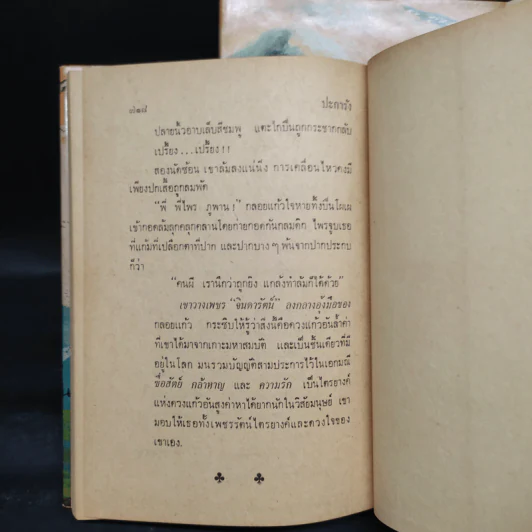 ๗๒๘ ปะการัง
ปลายนิ้วอาบเล็บสีชมพู แตะไกปืนถูกกระชากกลับ
เปรี้ยง...เปรี้ยง!!
สองนัดซ้อน เขาล้มลงแน่นิ่ง การเคลื่อนไหวคงมี
เพียงปกเสื้อถูกลมพัด
“พี่ พี่ไพร ภูพาน!” กลอยแก้วใจหายทิ้งปืนโผเผ
เข้ากอดล้มลุกคลุกคลานโดยก่ายกอดกันกลมดิก ไพรจูบเธอ
ที่แก้มที่เปลือกตาที่ปาก และปากบาง ๆ พ้นจากปากประกบ
ก็ว่า
“คนผี เรานึกว่าถูกยิง แกล้งทำล้มก็ได้ด้วย”
เขาวางเพชร “จินดารัตน์” ลงกลางอุ้งมือของ
กลอยแก้ว กระซิบให้รู้ว่าสิ่งนี้คือดวงแก้วอันล้ำค่า
ที่เขาได้มาจากเกาะมหาสมบัติ และเป็นชิ้นเดียวที่มี
อยู่ในโลก มนรวมบัญญัติสามประการไว้ในเอกมณี
ซื่อสัตย์ กล้าหาญ และ ความรัก เป็นไตรยางค์
แห่งดวงแก้วอันสูงค่าหาได้ยากนักในวิสัยมนุษย์ เขา
มอบให้เธอทั้งเพชรรัตน์ไตรยางค์และดวงใจของ
เขาเอง.